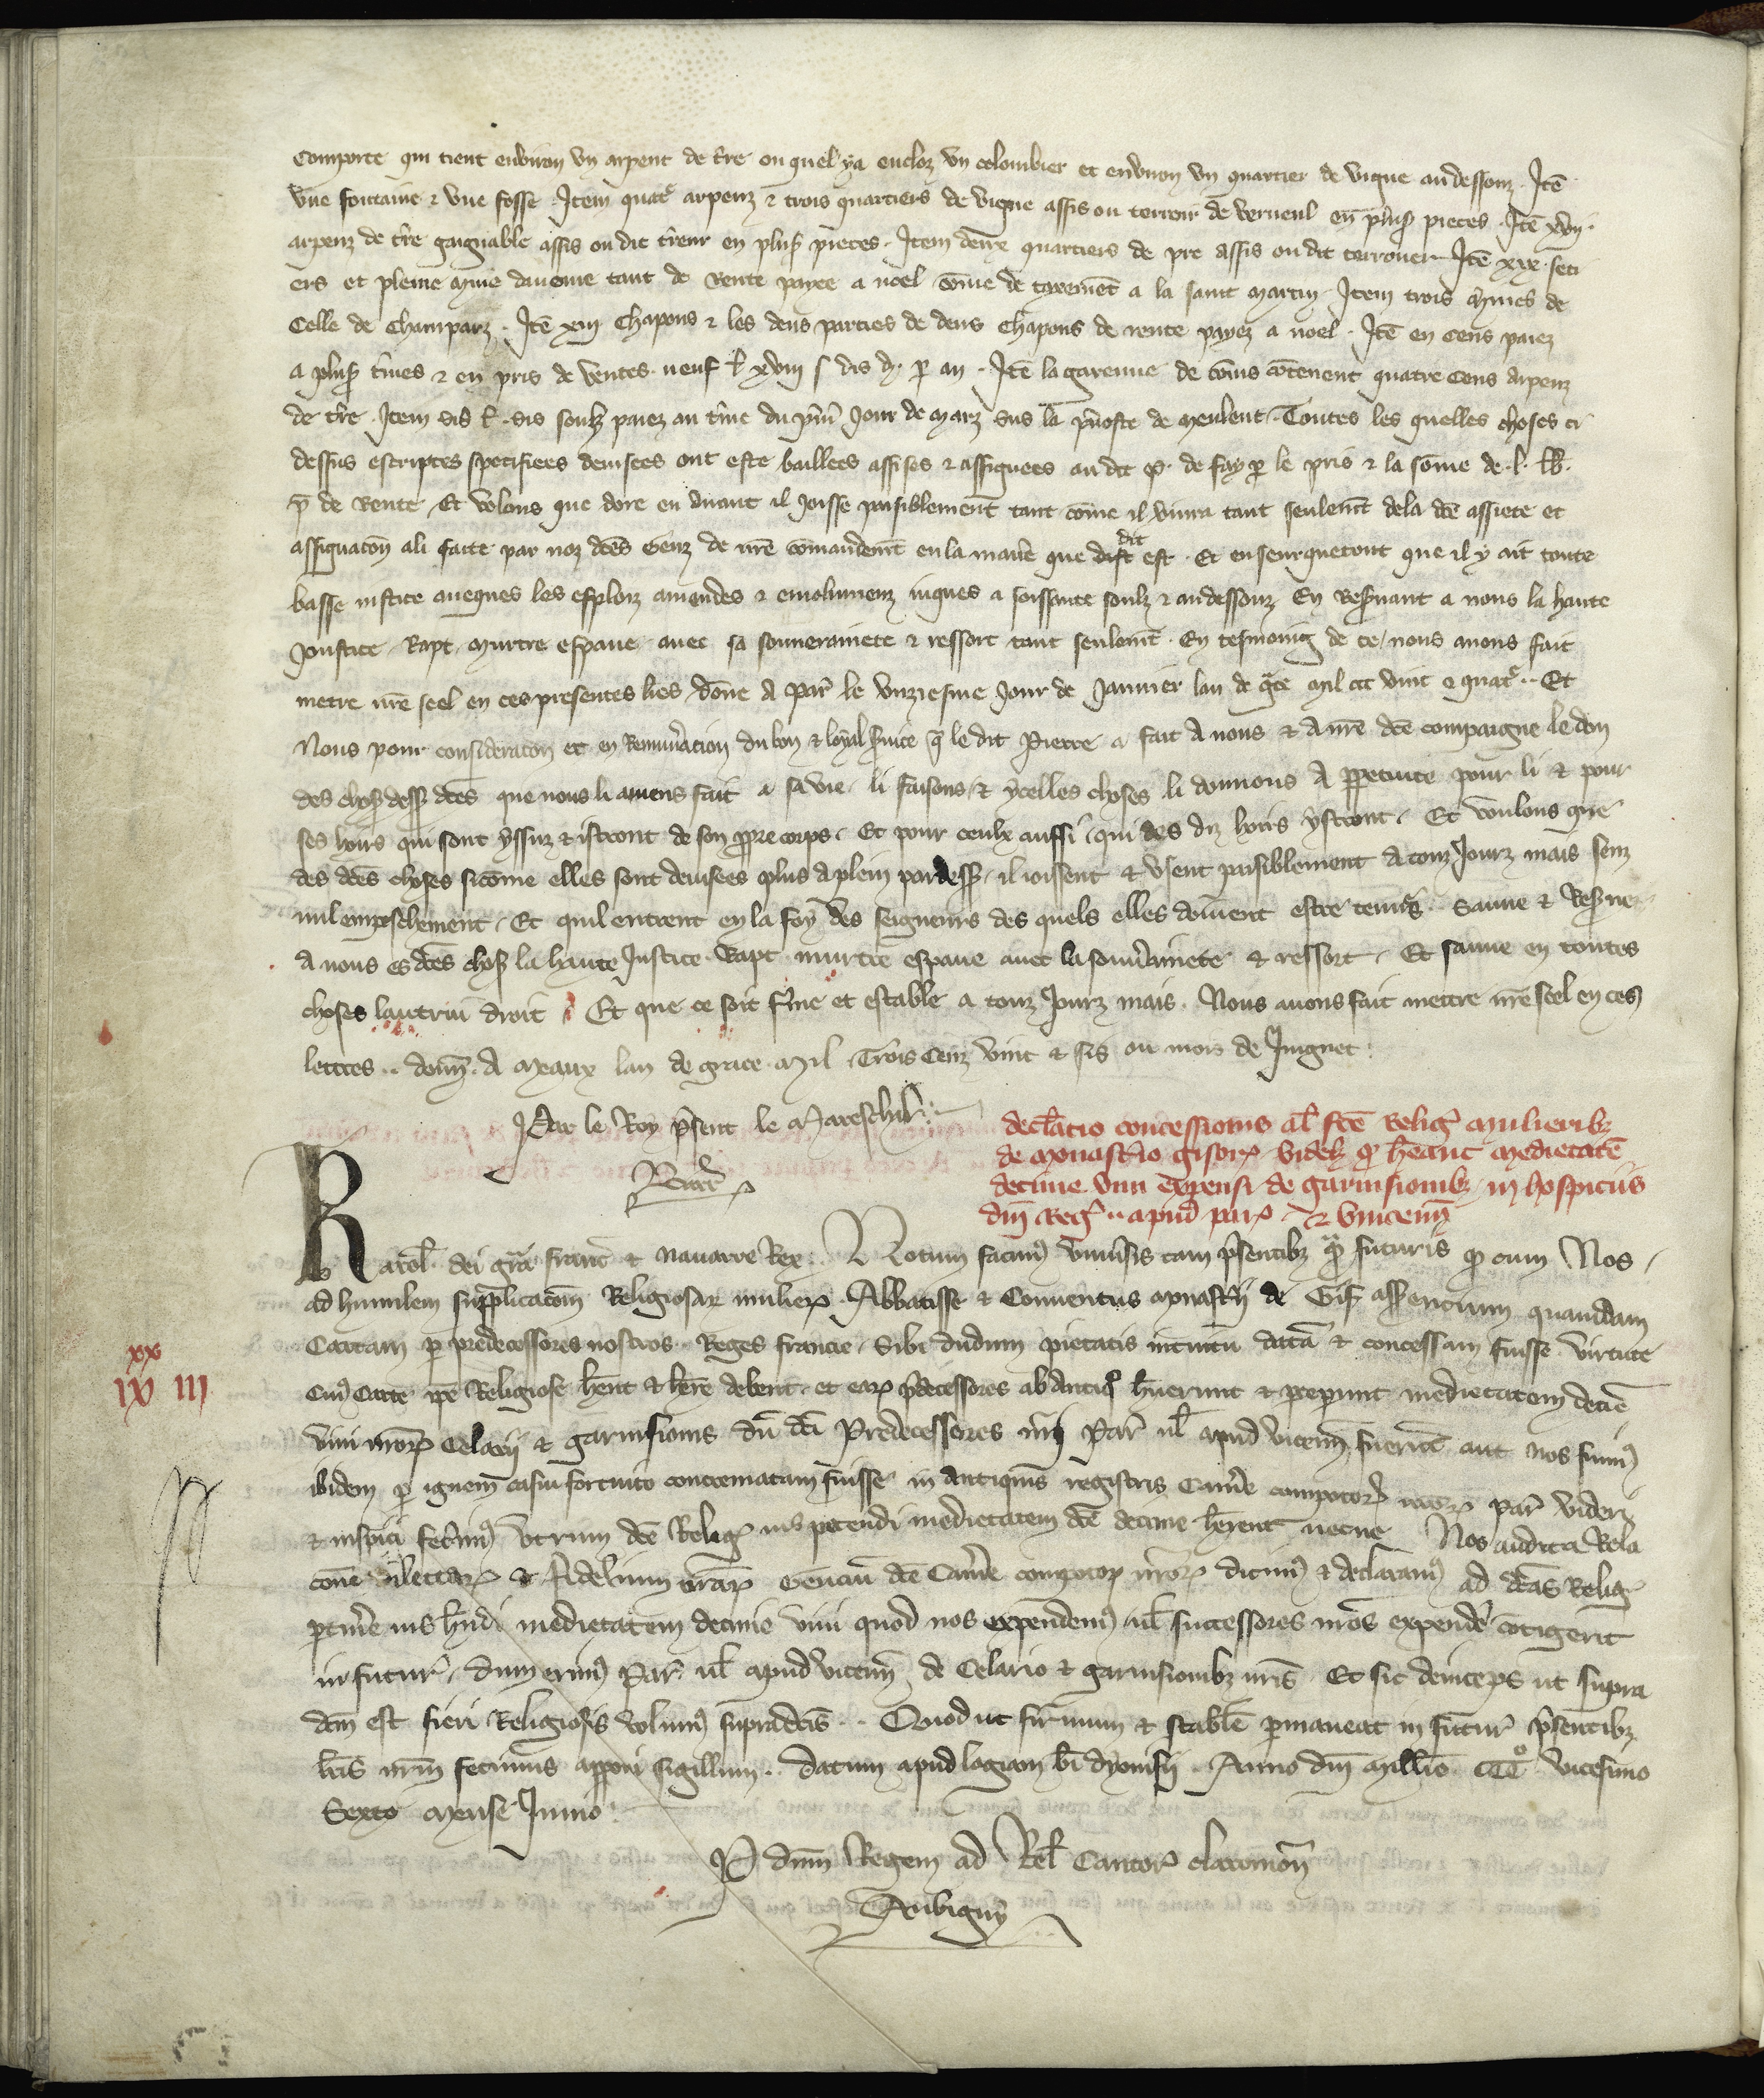 Comporte qui tient environ un arpent de t̃re ou quel ya encloz un colombier et environ un quartier de vigne au dessouz. Itẽ
une fontaine ⁊ une fosse. Item quatͬ arpenz ⁊ trois quartiers de vigne assis ou terrour de Verneul en plus̃ pieces. Itẽ xvij.
arpenz de t̃re gaignable assis ou dit t̃rour en plus̃ pieces. Item deux quartiers de pre assis ou dit terrouer Itẽ xix. seti
ers et pleine mine daveine tant de Rente paiee a noel cõme de tenement a la saint martin. Item trois mines de
celle de Champarz. Itẽ xiij Chapons ⁊ les deus parties de deus Chapons de rente paiez a noel. Itẽ en cens paiez
a plus̃ t̃mes ⁊ en pris de ventes. neuf l̃ xviij s̃ dis d̃. p̱ an. Itẽ la garenne de cõnis cõtenent quatre cens arpenz
de t̃re. Item sis l̃. sis soulz paiez au t̃me du p̃mĩ jour de marz sus la p̃voste de meulent. Toutes les quelles choses ci
dessus escriptes specifiees devisees ont este baillees assises ⁊ assignees au dit P̃. de fay p̱ le pris ⁊ la sõme de .l. lb̃.
p̃ de Rente. Et volons que dore en avant il joisse paisiblement tant cõme il vivra tant seulem̃t dela dc̃e assiete et
assignacõn a li faite par noz dc̃es Genz de nr̃e cõmandem̃t en la maniẽ̴re que dit est. Et enseurquetout que il y ait toute
basse justice aveques les esploiz amendes ⁊ emolumenz jusques a soissante soulz ⁊ au dessouz. En Res̃vant a nous la haute
Joustice Rapt, murtre espave avec sa souverainete ⁊ ressort tant seulem̃t. En tesmoing de ce, nous avons fait
metre nr̃e seel en ces presentes lr̃es. Dõne A Par̃ le unziesme jour de Janvier lan de gr̃ce mil ccc vint ⁊ quatͬ. Et
Nous pour consideracõn et en Remun̄eracion du bon ⁊ loyal s̃vice q̃ le dit Pierre a fait A nous ⁊ A nr̃e dc̃e compaigne le don
des chos̃ dess̃ dc̃es que nous li aviens fait a sa vie. li faisons, ⁊ ycelles choses li donnons A p̱petuite pour li ⁊ pour
ses hoirs qui sont yssuz ⁊ istront de son p̱pre corps. Et pour ceulx aussi qui des diz hoirs ystront. Et voulons que
des dc̃es choses sicõme elles sont devisees plus a plein par dess̃. il joissent ⁊ usent paisiblement A touz Jourz mais senz
nul empeschement. Et quil entrent en la foy des seigneurs des quels elles doivent estre tenues. Sauve ⁊ Res̃ve
A nous es dc̃es chos̃ la haute Justice. Rapt murtre espave avec la souv̄erainete ⁊ ressort. Et sauve en toutes
choses lautrui droit. Et que ce soit f̃me et estable a touz Jourz mais. Nous avons fait mettre nr̃e seel en ces
lettres.. donñ. A Meaux lan de grace Mil Trois Cenz vint ⁊ sis ou mois de Juignet.
Par le Roy p̃sent le Mareschal.
declãtio concessionis al̃ fcẽ Relig̃ mulieribꝫ
de Monast̃io gisorꝝ. videlꝫ qd̃ hẽant medietatẽ
decime vini expensi de garnisionibꝫ in hospiciis
dñi Reg̃.. apud parꝝ ⁊ vincenñ
Karol̃. dei gr̃a franc̃ ⁊ Navarre Rex. Notum facimꝰ univ̄sis tam p̃sentibꝫ qᵃ̃ futuris qd̃ cum Nos
ad humilem supplicacõm Religiosarꝝ mulierꝝ. Abbatisse ⁊ Conventus monast̃ij de Gis̃ asserencium quamdam
Cartam p̱ predecessores nostros. Reges francie. Sibi dudum pietatis intuitu datã ⁊ concessam fuisse virtute
cuiꝰ Carte ip̃e Religiose hẽnt ⁊ hẽre debent. et earꝝ p̃decessores ab antiqᵒ hũerunt ⁊ p̱ceperunt medietatem deciẽ̴
vini nr̃orꝝ Celarij ⁊ garnisionis dũ dc̃i Predecessores nr̃i Par̃ ul̃ apud vicenñ. fuerũt aut nos sumꝰ
ibidem p̱ ignem casu fortuito concrematam fuisse. in antiquis registris Cam̃e compotorꝝ nr̃orꝝ Par̃ videri
⁊ inspici fecimꝰ utrum dc̃e Religꝝ ius petendi medietatem dc̃e decime hẽrent necne. Nos audita Rela
cõne dilectorꝝ ⁊ fidelium nr̃orꝝ Genciũ dc̃e Cam̃e compotorꝝ nr̃orꝝ dicimꝰ ⁊ declaramꝰ ad dc̃as Relig̃
p̱tin̄ere ius hñdi medietatem decime vini quod nos expendemꝰ ul̃ successores nr̃os expendẽ cõtigerit
in futur̃. dum erimꝰ Par̃ ul̃ apud vicenñ de Celario ⁊ garnisionibꝫ nr̃is. Et sic deinceps ut supra
dc̃m est fieri Religiosis volumꝰ supradc̃is.. Quod ut firmum ⁊ stabilẽ p̱maneat in futur̃ p̃sentibꝫ
lr̃is nr̃m fecimus apponi sigillum. Datum apud logiam bĩ dyonisij. Anno dñi Mill̃io CCCº vicesimo
Sexto mense Junio.
P̱ dñm Regem ad Rel̃ Cantorꝝ claromoñ
Aubigny
xx
ix iii